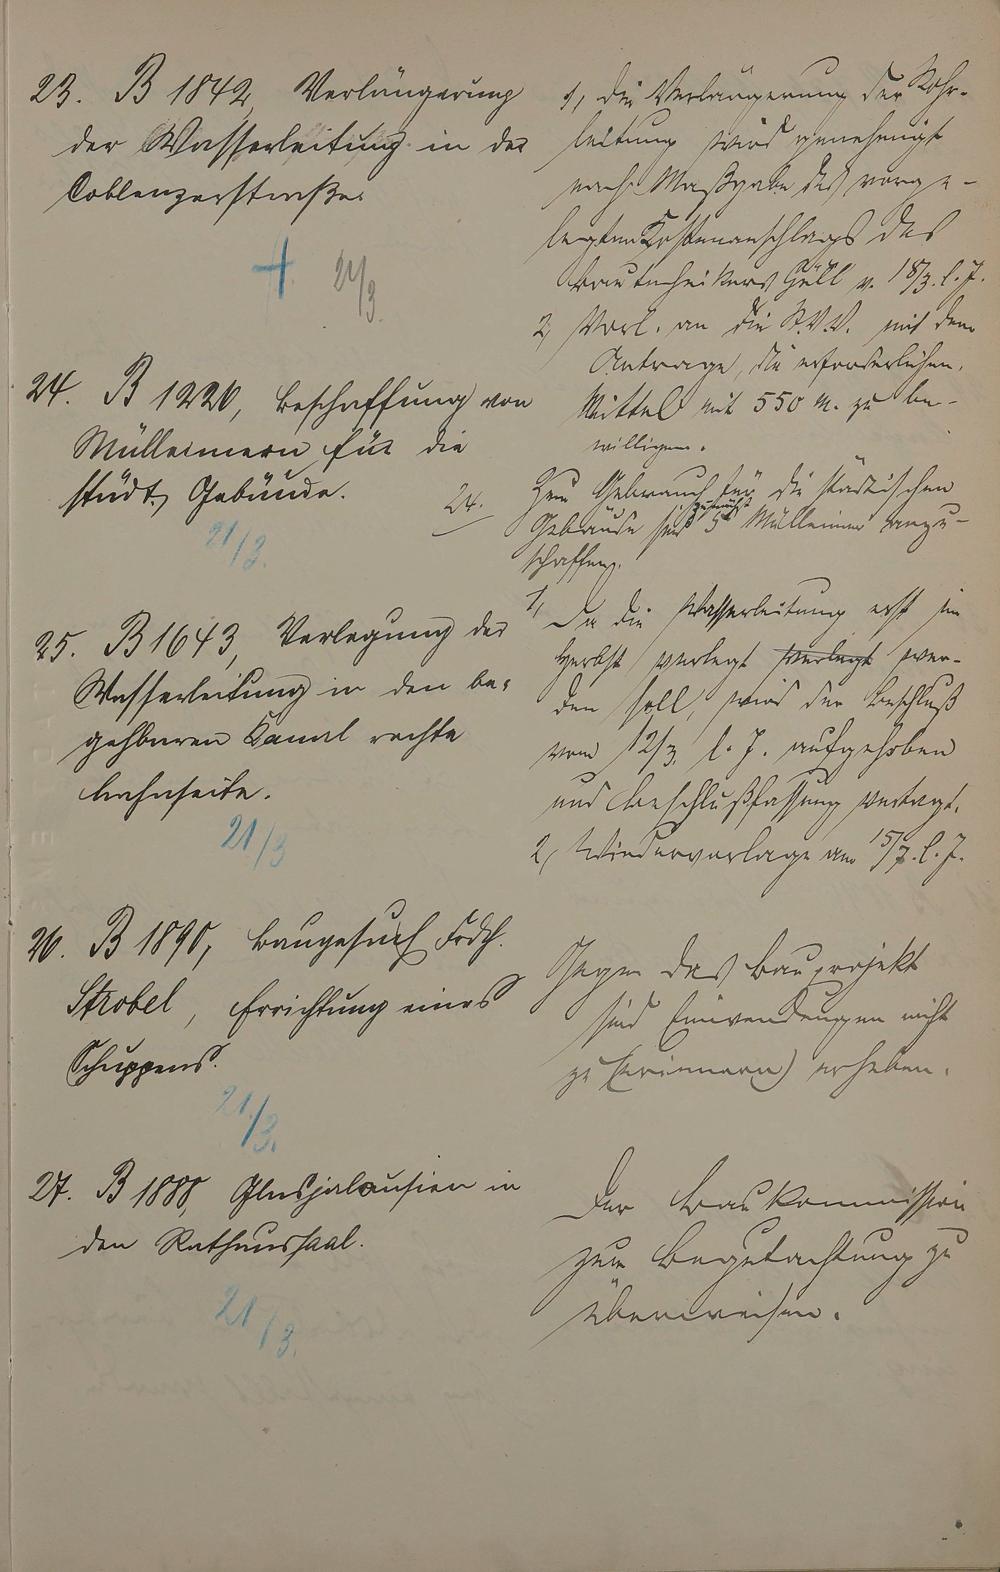 23. B 1842, Verlängerung
der Wasserleitung in der
Coblenzerstraße.
21/3.
1, Die Verlängerung der Rohr-
leitung wird genehmigt
nach Maßgabe des vorge-
legten Kostenanschlags des
Bautechnikers Güll v. 18/3. l. J.
2, Vorl. an die St.V.V. mit dem
Antrage, die erforderlichen
Mittel mit 550 M. zu be-
willigen.
24. B 1220, Beschaffung von
Mülleimern für die
städt. Gebäude.
21/3.
24. Zum Gebrauch für die städtischen
Gebäude sind zunächst 5 Mülleimer anzu-
schaffen.
25. B 1643, Verlegung der
Wasserleitung in den be-
gehbaren Kanal rechte
Lahnseite.
21/3
1, Da die Wasserleitung erst im
Herbst verlegt verlegt wer-
den soll, wird der Beschluß
vom 12/3. l. J. aufgehoben
und Beschlußfassung vertagt.
2, Wiedervorlage am 15/7. l. J.
26. B 1890, Baugesuch Frdch.
Strobel, Errichtung eines
Schuppens.
21/3.
Gegen das Bauprojekt
sind Einwendungen nicht
zu (erinnern) erheben.
27. B 1888, Glasjalousien in
den Rathaussaal.
21/3.
Der Baukommission
zum Begutachtung zu
überweisen.